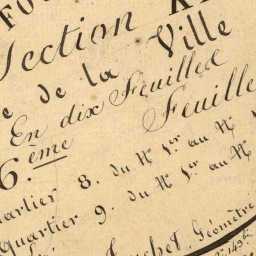 Section X
e de la Ville
En dix Feuilles
6.ème Feuille
uartier 8. du N° 1er au N°
Quartier 9. du N° 1er au N°
Géomètre